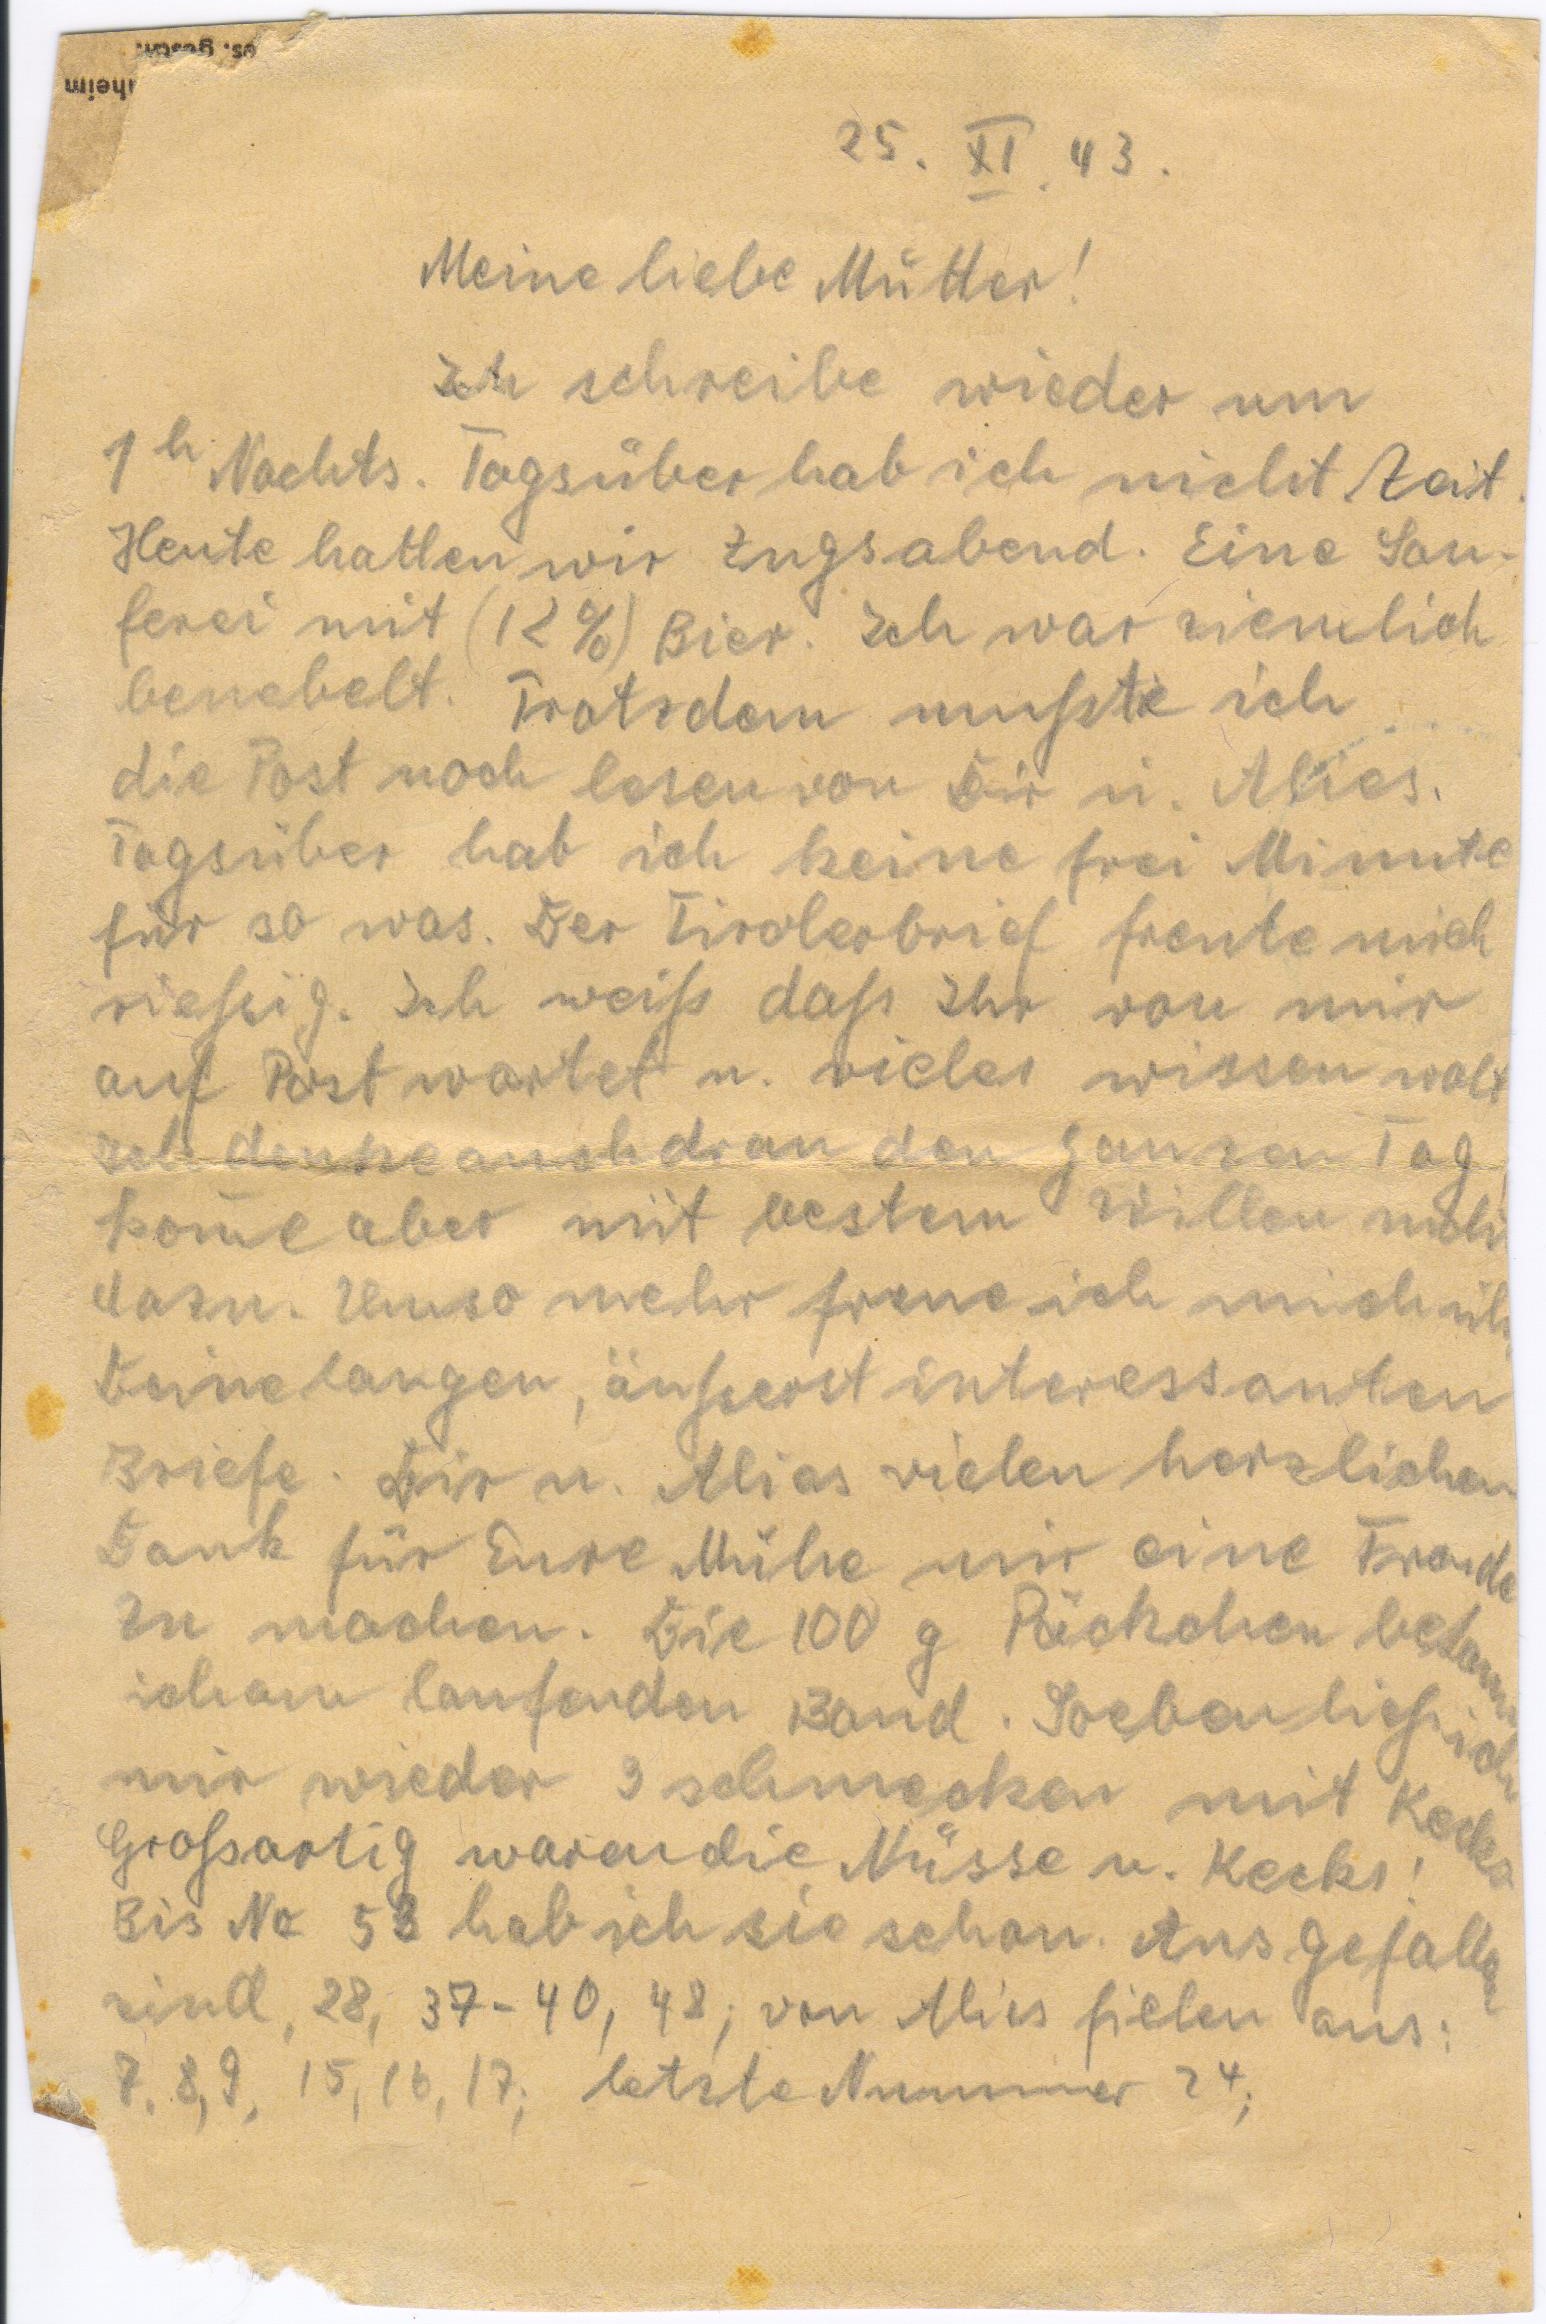 os. gesch.
nheim
25. XI. 43.
Meine liebe Mütter!
Ich schreibe wieder um
1h Nachts. Tagsüber hab ich nicht Zeit.
Heute hatten wir Zugsabend. Eine Sau-
ferei mit (12%) Bier. Ich war ziemlich
benebelt. Trotzdem mußte ich
die Post noch lesen von Dir u. Alies.
Tagsüber hab ich keine frei Minute
für so was. Der Tirolerbrief freute mich
rießig. Ich weiß daß Ihr von mir
auf Post wartet u. vieles wissen wollt
Ich denke auch dran den ganzen Tag,
kom̄e aber mit bestem Willen nicht
dazu. Umso mehr freue ich mich üb.
Deine langen, äußerst interessanten
Briefe. Dir u. Alies vielen herzlichen
Dank für Eure Mühe mir eine Freude
zu machen. Die 100 g Päckchen bekam
ich am laufenden Band. Soeben ließ ich
mir wieder 3 schmecken mit Kecks
Großartig waren die Nüsse u. Kecks!
Bis No 53 hab ich sie schon. Ausgefallen
sind, 28, 37-40, 48; von Alies fielen aus:
7, 8, 9, 15, 16, 17; letzte Nummer 24;